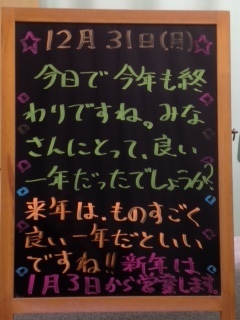 ☆12月31日(月)☆
今日で今年も終
わりですね。みな
さんにとって、良い
一年だったでしょうか?
来年は、ものすごく
良い一年だといい
ですね!!新年は、
1月3日から営業します。